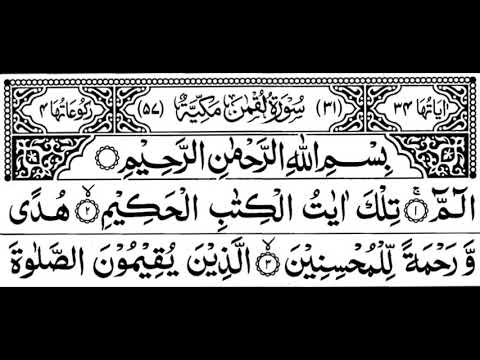 اٰیَاتُهَا ۳۴ (۳۱) سُوْرَةُ لُقْمٰنَ مَكِّیَّةٌ (۵۷) رُكُوْعَاتُهَا ۴
بِسْمِ اللّٰهِ الرَّحْمٰنِ الرَّحِیْمِ
الٓمّٓ ۚ﴿۱﴾ تِلْكَ اٰیٰتُ الْكِتٰبِ الْحَكِیْمِ ۙ﴿۲﴾ هُدًی
وَّ رَحْمَةً لِّلْمُحْسِنِیْنَ ۙ﴿۳﴾ الَّذِیْنَ یُقِیْمُوْنَ الصَّلٰوةَ